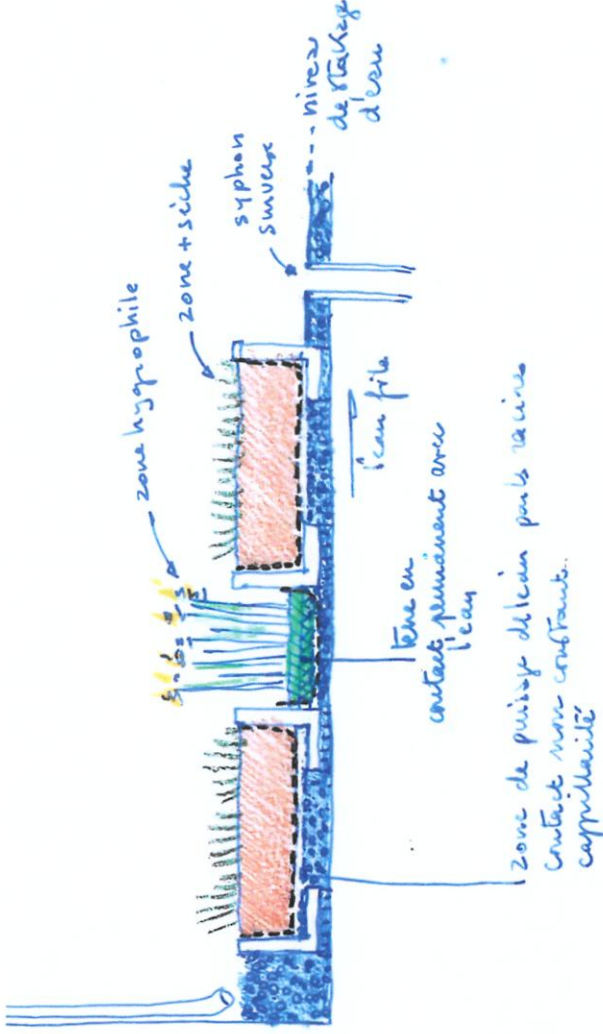 zone hygrophile
zone + sèche
syphon
surverse
niveau
de stockage
d'eau
l'eau file
terre en
contact permanent avec
l'eau
zone de puisage de l'eau par les racines
contact non constant.
cappillarité